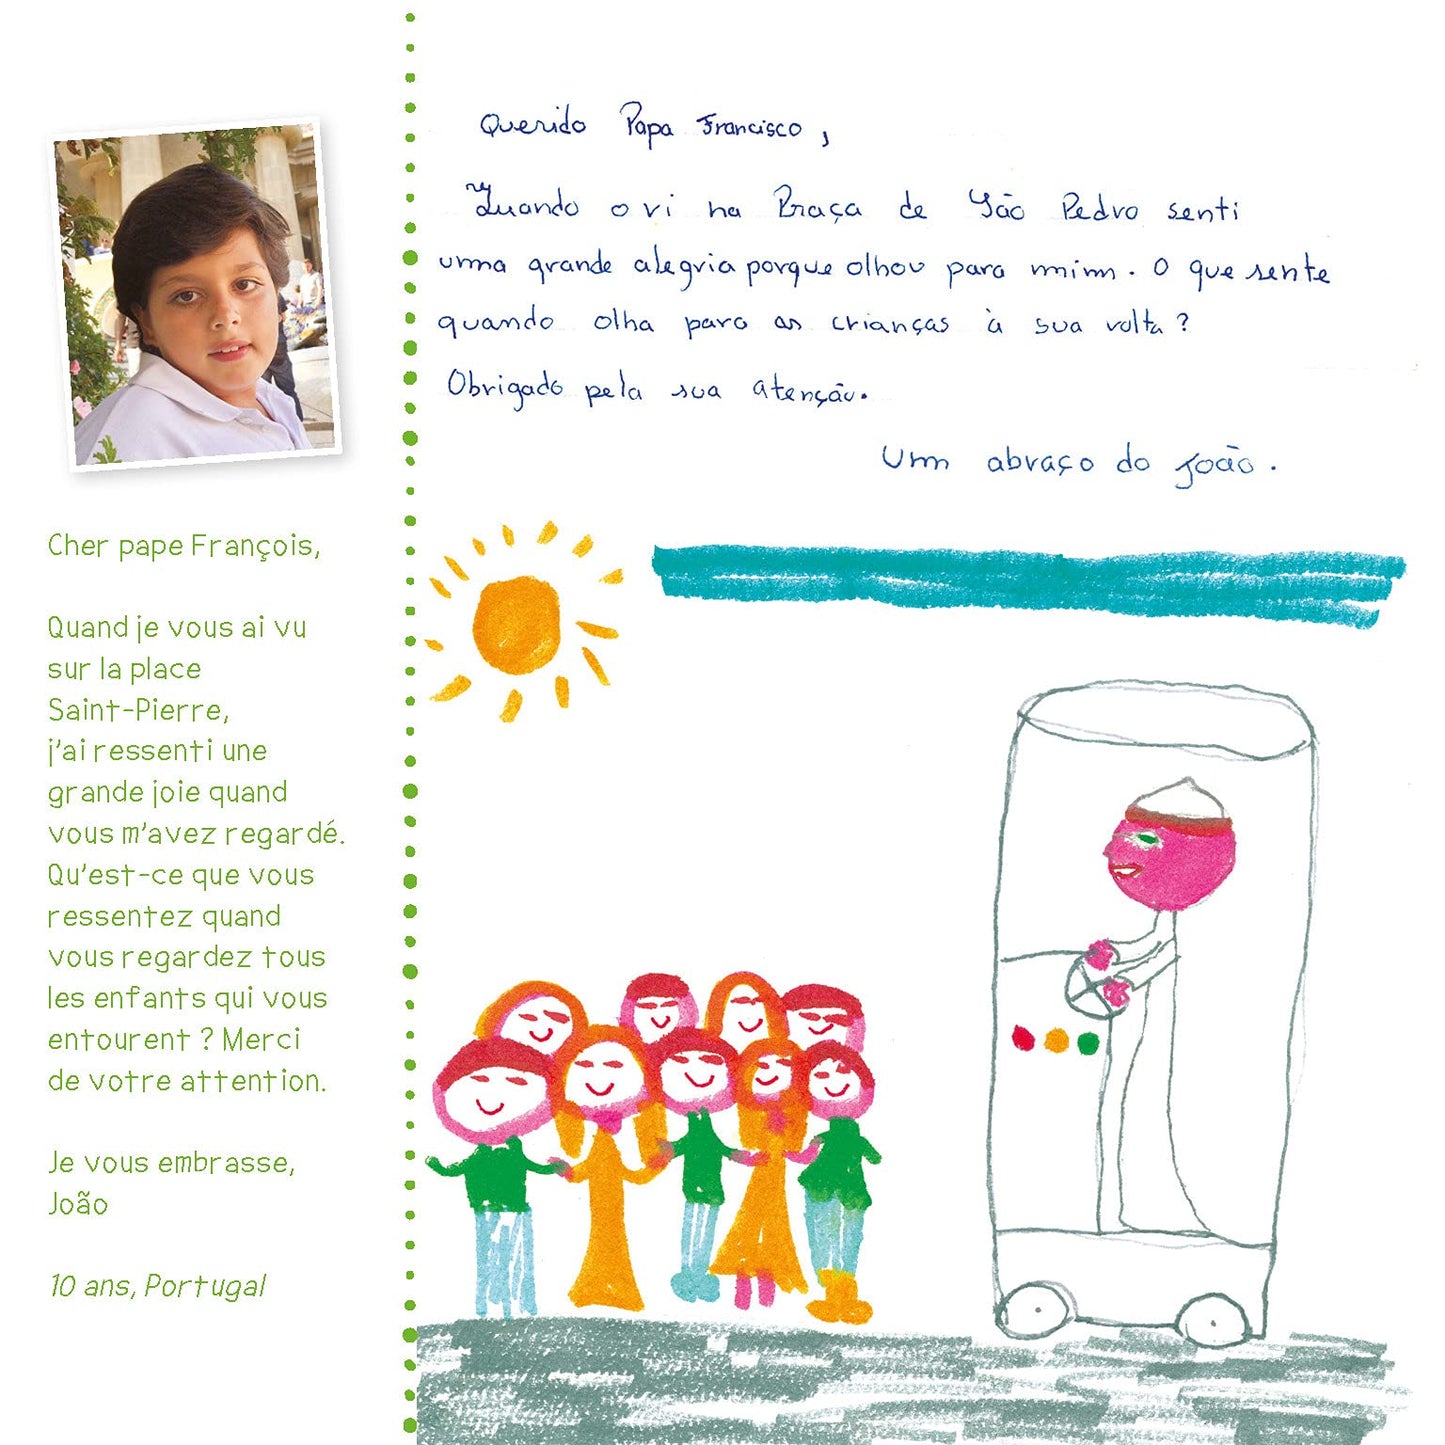 Querido Papa Francisco,
Quando o vi na Praça de São Pedro senti
uma grande alegria porque olhou para mim. O que sente
quando olha para as crianças à sua volta?
Obrigado pela sua atenção.
Um abraço do João.
Cher pape François,
Quand je vous ai vu
sur la place
Saint-Pierre,
j'ai ressenti une
grande joie quand
vous m'avez regardé.
Qu'est-ce que vous
ressentez quand
vous regardez tous
les enfants qui vous
entourent ? Merci
de votre attention.
Je vous embrasse,
João
10 ans, Portugal